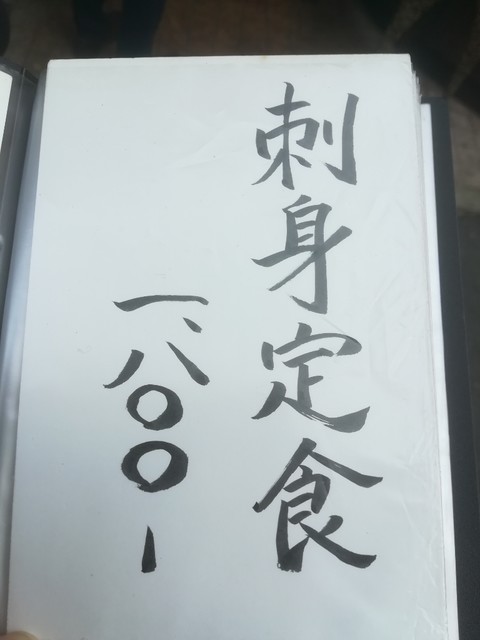 刺身定食
一、八〇〇ー